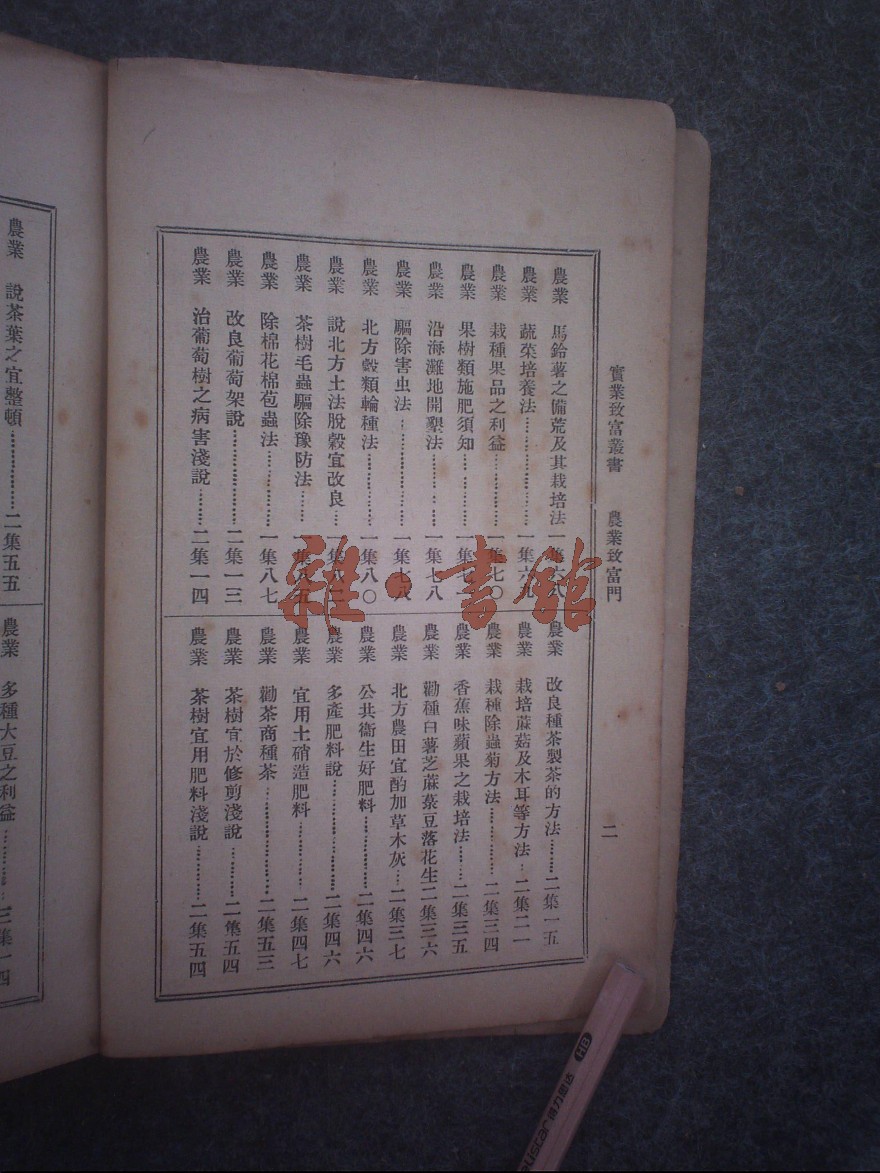 實業致富叢書 農業致富門 二
農業 馬鈴薯之備荒及其栽培法 一集六八
農業 蔬菜培養法………一集六九
農業 栽種果品之利益………一集七〇
農業 果樹類施肥須知………一集七一
農業 沿海灘地開墾法………一集七八
農業 驅除害虫法………一集七八
農業 北方穀類輪種法………一集八〇
農業 說北方土法脫穀宜改良…一集八二
農業 茶樹毛蟲驅除豫防法……一集八五
農業 除棉花棉苞蟲法………一集八七
農業 改良葡萄架說………二集一三
農業 治葡萄樹之病害淺說……二集一四
農業 改良種茶製茶的方法……二集一五
農業 栽培蔴菇及木耳等方法…二集二一
農業 栽種除蟲菊方法………二集三四
農業 香蕉味蘋果之栽培法……二集三五
農業 勸種白薯芝蔴菉豆落花生二集三六
農業 北方農田宜酌加草木灰…二集三七
農業 公共衞生好肥料………二集四六
農業 多產肥料說………二集四六
農業 宜用土硝造肥料………二集四七
農業 勸茶商種茶………二集五三
農業 茶樹宜於修剪淺說………二集五四
農業 茶樹宜用肥料淺說………二集五四
農業 說茶葉之宜整頓………二集五五
農業 多種大豆之利益………三集一四
雜·書館
HB
得力思达